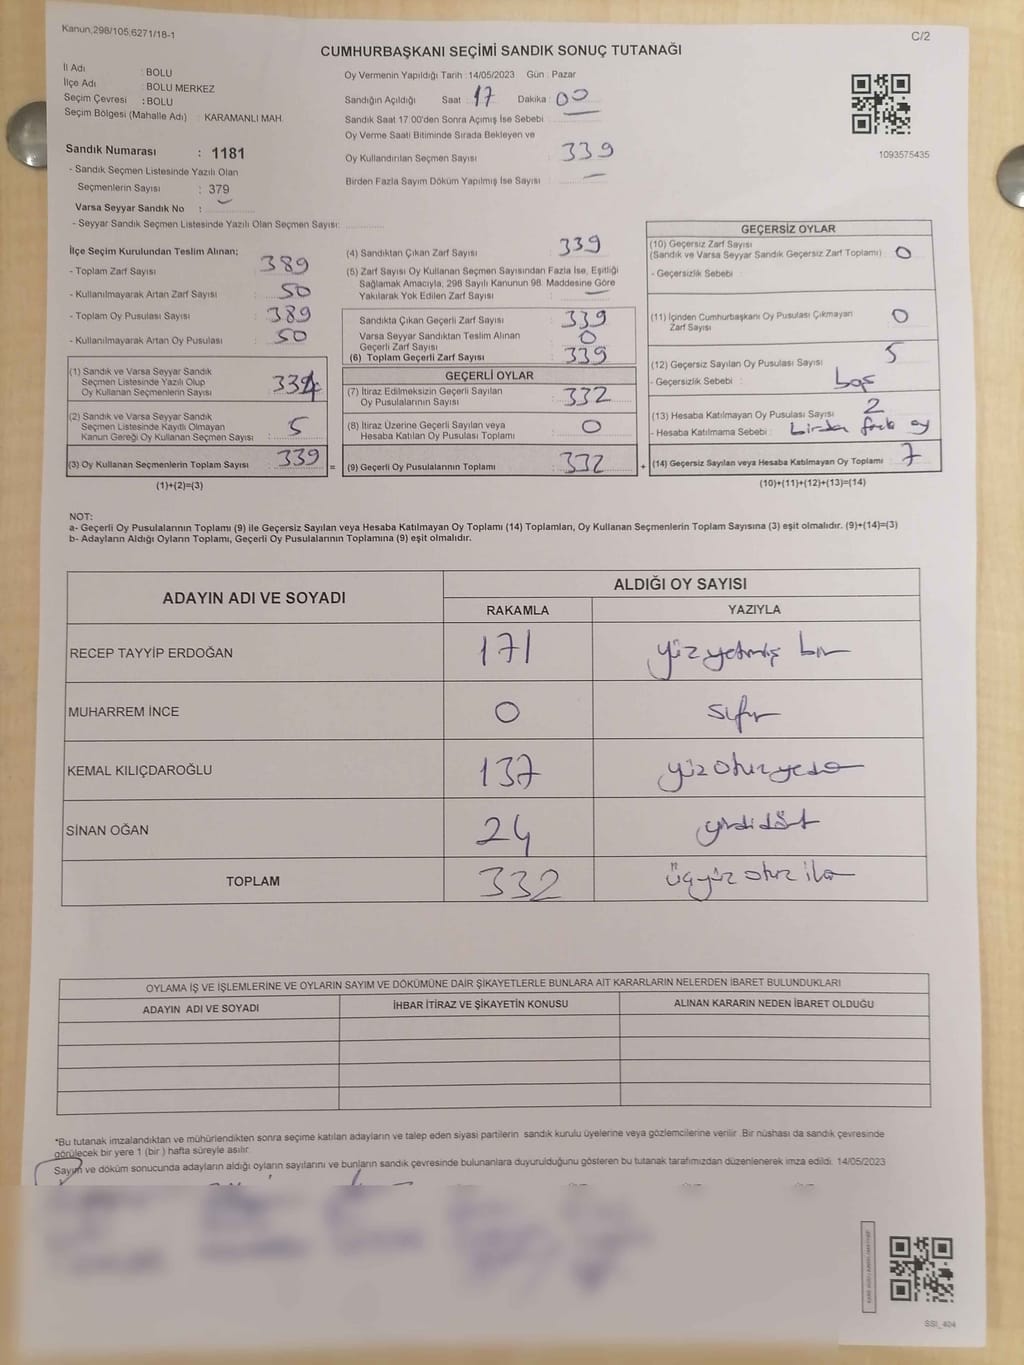 Kanun,298/105;6271/18-1
C/2
CUMHURBAŞKANI SEÇİMİ SANDIK SONUÇ TUTANAĞI
İl Adı : BOLU
İlçe Adı : BOLU MERKEZ
Seçim Çevresi : BOLU
Seçim Bölgesi (Mahalle Adı) : KARAMANLI MAH.
Sandık Numarası : 1181
- Sandık Seçmen Listesinde Yazılı Olan
Seçmenlerin Sayısı : 379
Varsa Seyyar Sandık No :
- Seyyar Sandık Seçmen Listesinde Yazılı Olan Seçmen Sayısı:
Oy Vermenin Yapıldığı Tarih : 14/05/2023 Gün : Pazar
Sandığın Açıldığı Saat : 17 Dakika : 00
Sandık Saat 17:00'den Sonra Açımış İse Sebebi :
Oy Verme Saati Bitiminde Sırada Bekleyen ve
Oy Kullandırılan Seçmen Sayısı : 339
Birden Fazla Sayım Döküm Yapılmış İse Sayısı :
1093575435
İlçe Seçim Kurulundan Teslim Alınan;
- Toplam Zarf Sayısı : 389
- Kullanılmayarak Artan Zarf Sayısı : 50
- Toplam Oy Pusulası Sayısı : 389
- Kullanılmayarak Artan Oy Pusulası : 50
(1) Sandık ve Varsa Seyyar Sandık
Seçmen Listesinde Yazılı Olup
Oy Kullanan Seçmenlerin Sayısı : 334
(2) Sandık ve Varsa Seyyar Sandık
Seçmen Listesinde Kayıtlı Olmayan
Kanun Gereği Oy Kullanan Seçmen Sayısı : 5
(3) Oy Kullanan Seçmenlerin Toplam Sayısı : 339 =
(1)+(2)=(3)
(4) Sandıktan Çıkan Zarf Sayısı : 339
(5) Zarf Sayısı Oy Kullanan Seçmen Sayısından Fazla İse, Eşitliği
Sağlamak Amacıyla; 298 Sayılı Kanunun 98. Maddesine Göre
Yakılarak Yok Edilen Zarf Sayısı :
Sandıkta Çıkan Geçerli Zarf Sayısı : 339
Varsa Seyyar Sandıktan Teslim Alınan
Geçerli Zarf Sayısı : 0
(6) Toplam Geçerli Zarf Sayısı : 339
GEÇERLİ OYLAR
(7) İtiraz Edilmeksizin Geçerli Sayılan
Oy Pusulalarının Sayısı : 332
(8) İtiraz Üzerine Geçerli Sayılan veya
Hesaba Katılan Oy Pusulası Toplamı : 0
(9) Geçerli Oy Pusulalarının Toplamı : 332 +
GEÇERSİZ OYLAR
(10) Geçersiz Zarf Sayısı
(Sandık ve Varsa Seyyar Sandık Geçersiz Zarf Toplamı) : 0
- Geçersizlik Sebebi :
(11) İçinden Cumhurbaşkanı Oy Pusulası Çıkmayan
Zarf Sayısı : 0
(12) Geçersiz Sayılan Oy Pusulası Sayısı : 5
- Geçersizlik Sebebi : boş
(13) Hesaba Katılmayan Oy Pusulası Sayısı : 2
- Hesaba Katılmama Sebebi : birden fazla oy
(14) Geçersiz Sayılan veya Hesaba Katılmayan Oy Toplamı : 7
(10)+(11)+(12)+(13)=(14)
NOT:
a- Geçerli Oy Pusulalarının Toplamı (9) ile Geçersiz Sayılan veya Hesaba Katılmayan Oy Toplamı (14) Toplamları, Oy Kullanan Seçmenlerin Toplam Sayısına (3) eşit olmalıdır. (9)+(14)=(3)
b- Adayların Aldığı Oyların Toplamı, Geçerli Oy Pusulalarının Toplamına (9) eşit olmalıdır.
ADAYIN ADI VE SOYADI
ALDIĞI OY SAYISI
RAKAMLA YAZIYLA
RECEP TAYYİP ERDOĞAN 171 yüzyetmiş bir
MUHARREM İNCE 0 sıfır
KEMAL KILIÇDAROĞLU 137 yüzotuzyedi
SİNAN OĞAN 24 yirmidört
TOPLAM 332 üçyüz otuz iki
OYLAMA İŞ VE İŞLEMLERİNE VE OYLARIN SAYIM VE DÖKÜMÜNE DAİR ŞİKAYETLERLE BUNLARA AİT KARARLARIN NELERDEN İBARET BULUNDUKLARI
ADAYIN ADI VE SOYADI İHBAR İTİRAZ VE ŞİKAYETİN KONUSU ALINAN KARARIN NEDEN İBARET OLDUĞU
*Bu tutanak imzalandıktan ve mühürlendikten sonra seçime katılan adayların ve talep eden siyasi partilerin sandık kurulu üyelerine veya gözlemcilerine verilir. Bir nüshası da sandık çevresinde
görülecek bir yere 1 (bir) hafta süreyle asılır.
Sayım ve döküm sonucunda adayların aldığı oyların sayılarını ve bunların sandık çevresinde bulunanlara duyurulduğunu gösteren bu tutanak tarafımızdan düzenlenerek imza edildi. 14/05/2023
SSI_404